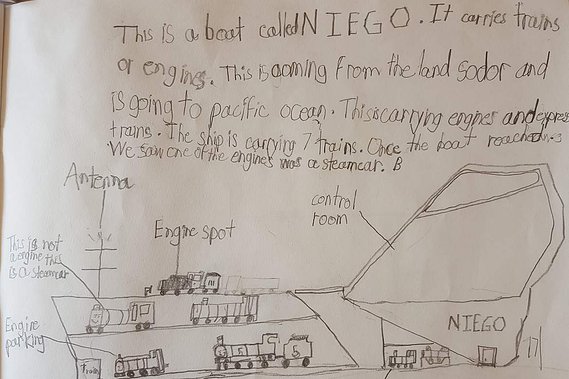 This is a boat called NIEGO. It carries trains
or engines. This is coming from the land sodor and
is going to pacific ocean. This is carrying engines and express
trains. The ship is carrying 7 trains. Once the boat reached
We saw one of the engines was a steamcar. B
Antenna
control
room
Engine spot
This is not
a engine this
is a steamcar
NIEGO
Engine
parking
17
5